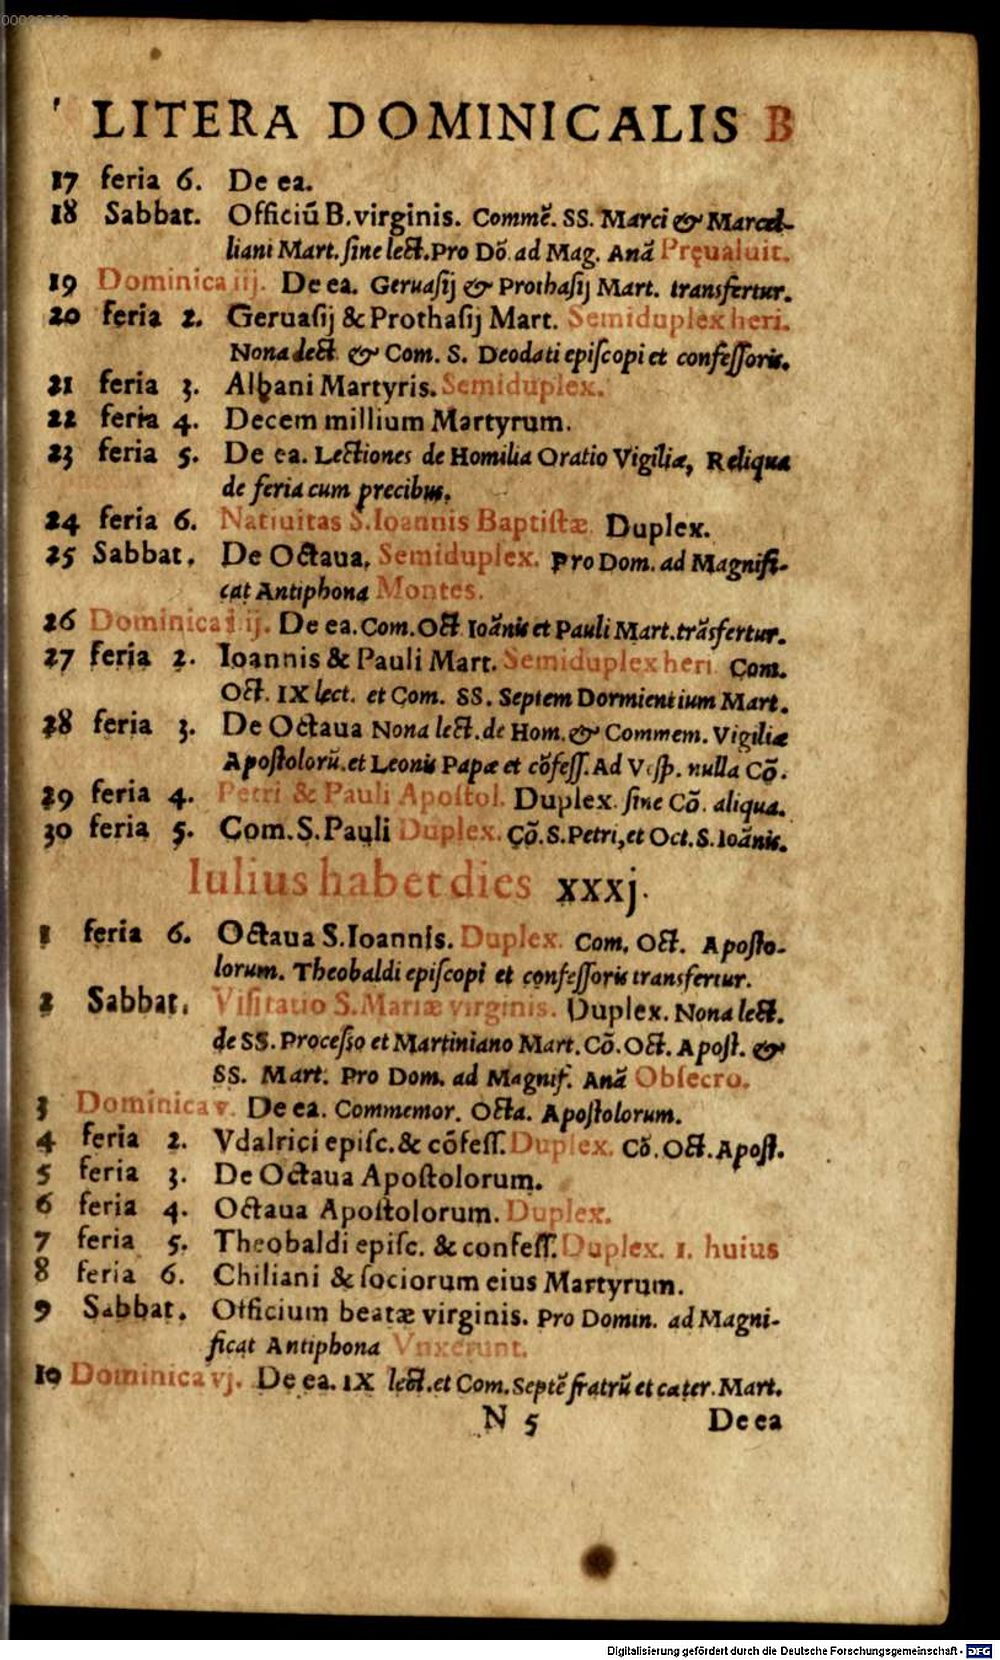 LITERA DOMINICALIS B
17 feria 6. De ea.
18 Sabbat. Officiũ B. virginis. Commẽ. SS. Marci & Marcel-
liani Mart. ſine lect. Pro Dõ. ad Mag. Anã Pręualuit.
19 Dominica iij. De ea. Geruaſij & Prothaſij Mart. transfertur.
20 feria 2. Geruaſij & Prothaſij Mart. Semiduplex heri.
Nona lect. & Com. S. Deodati epiſcopi et confeſſoris.
21 feria 3. Albani Martyris. Semiduplex.
22 feria 4. Decem millium Martyrum.
23 feria 5. De ea. Lectiones de Homilia Oratio Vigiliæ, Reliqua
de feria cum precibus.
24 feria 6. Natiuitas S. Ioannis Baptiſtæ. Duplex.
25 Sabbat. De Octaua, Semiduplex. Pro Dom. ad Magnifi-
cat Antiphona Montes.
26 Dominica iiij. De ea. Com. Oct Ioãnis et Pauli Mart. trãsfertur.
27 feria 2. Ioannis & Pauli Mart. Semiduplex heri. Com.
Oct. IX lect. et Com. SS. Septem Dormientium Mart.
28 feria 3. De Octaua Nona lect. de Hom. & Commem. Vigiliæ
Apoſtolorũ. et Leonis Papæ et cõfeſſ. Ad Veſp. nulla Cõ.
29 feria 4. Petri & Pauli Apoſtol. Duplex. ſine Cõ. aliqua.
30 feria 5. Com. S. Pauli Duplex. Cõ. S. Petri, et Oct. S. Ioãnis.
Iulius habet dies xxxj.
1 feria 6. Octaua S. Ioannis. Duplex. Com. Oct. Apoſto-
lorum. Theobaldi epiſcopi et confeſſoris transfertur.
2 Sabbat. Viſitatio S. Mariæ virginis. Duplex. Nona lect.
de SS. Proceſſo et Martiniano Mart. Cõ. Oct. Apoſt. &
SS. Mart. Pro Dom. ad Magnif. Anã Obſecro.
3 Dominica v. De ea. Commemor. Octa. Apoſtolorum.
4 feria 2. Vdalrici epiſc. & cõfeſſ. Duplex. Cõ. Oct. Apoſt.
5 feria 3. De Octaua Apoſtolorum.
6 feria 4. Octaua Apoſtolorum. Duplex.
7 feria 5. Theobaldi epiſc. & confeſſ. Duplex. 1. huius
8 feria 6. Chiliani & ſociorum eius Martyrum.
9 Sabbat. Officium beatæ virginis. Pro Domin. ad Magni-
ficat Antiphona Vnxerunt.
10 Dominica vj. De ea. IX lect. et Com. Septẽ fratrũ et cater. Mart.
N 5 De ea
Digitalisierung gefördert durch die Deutsche Forschungsgemeinschaft - DFG